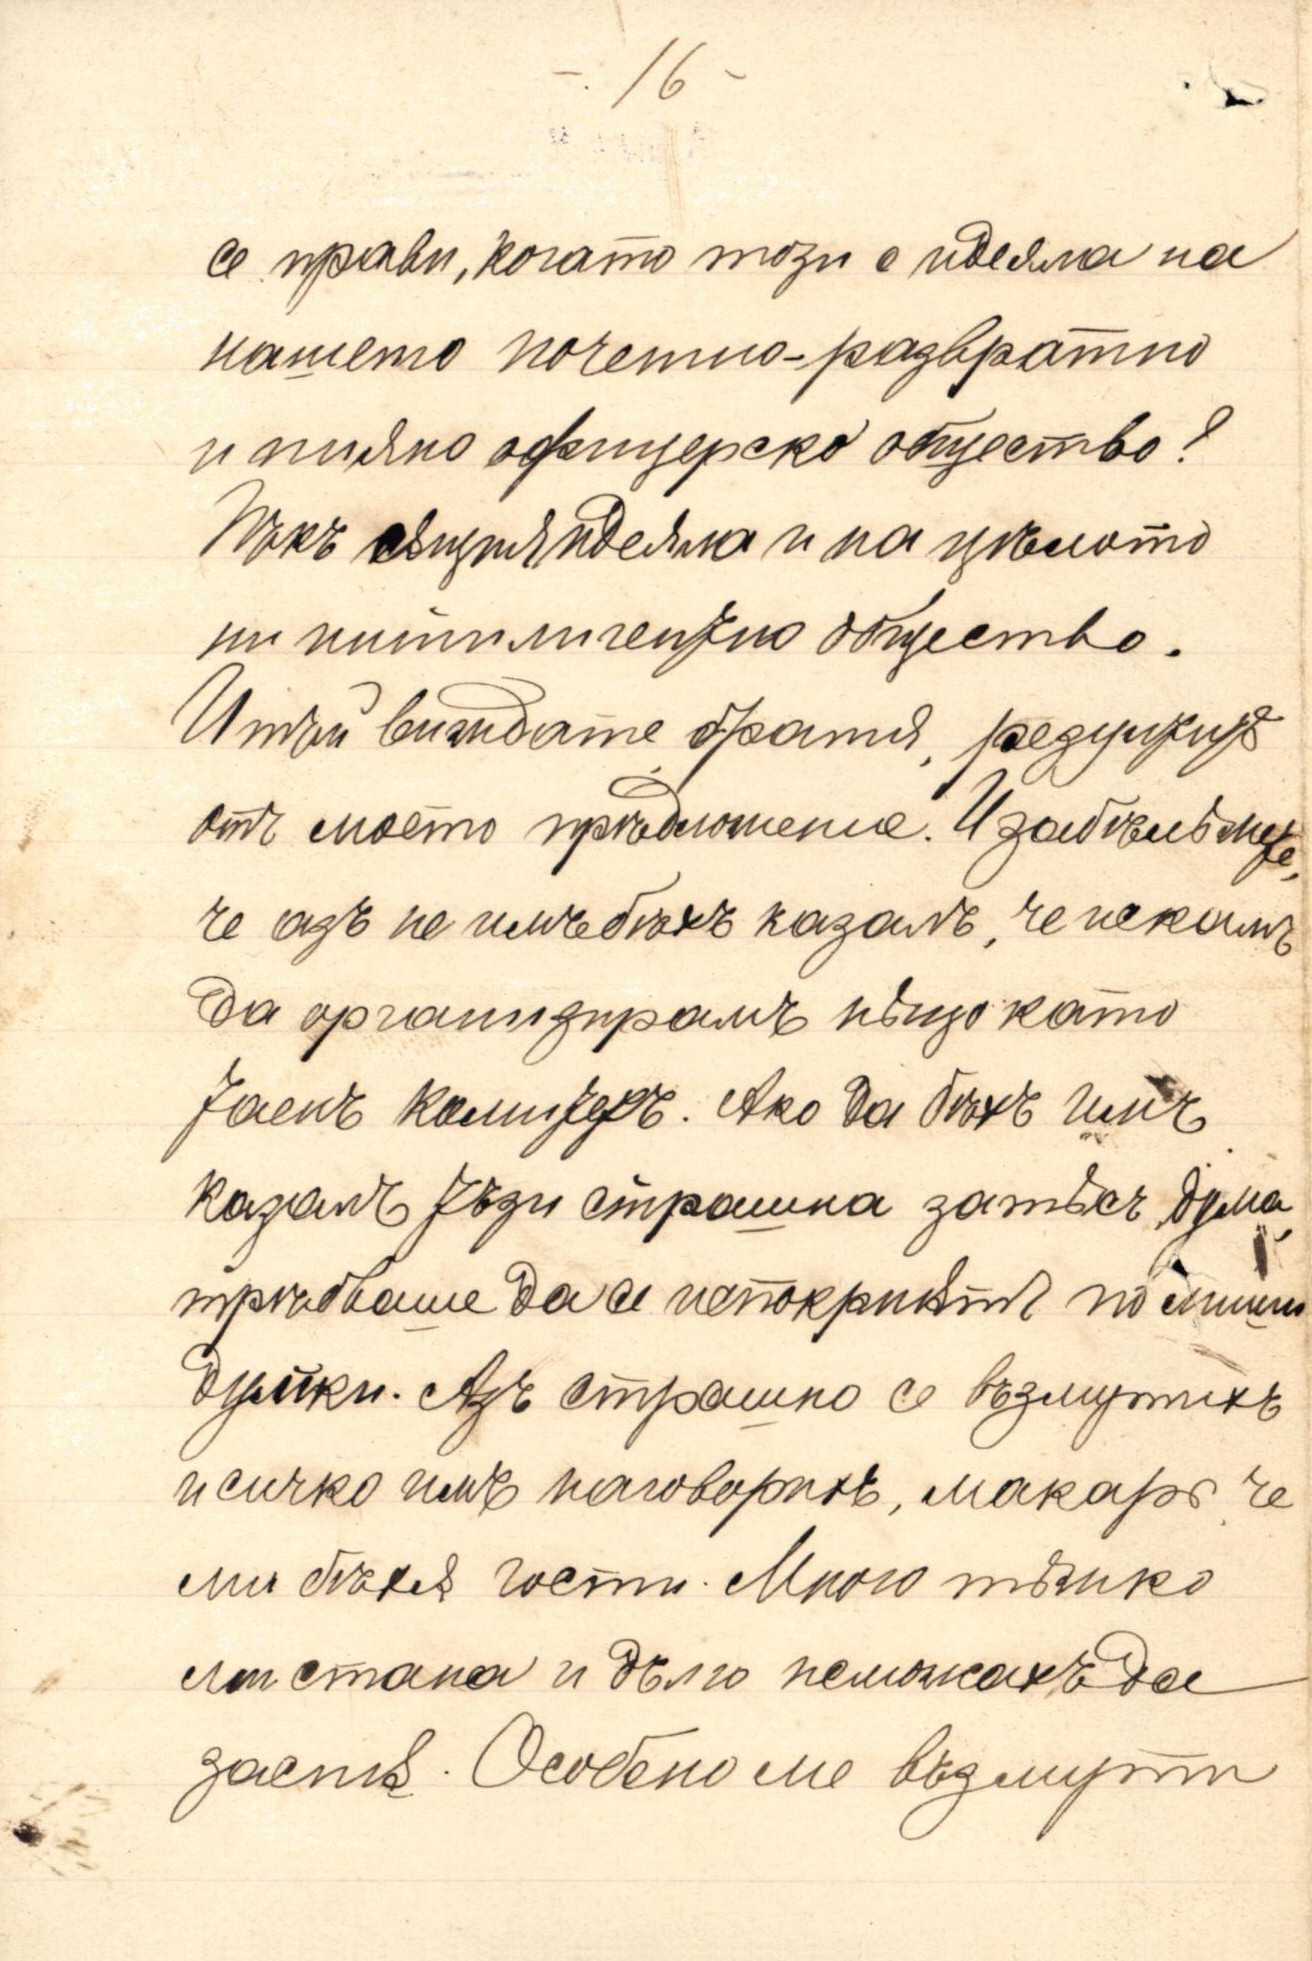 - 16 -
се прави, когато този е идеяла на
нашето почетно-развратно
и пияно офицерско общество?
Пъкъ сѫщия идеяла и на цѣлото
ни интилигентно общество.
И тъй виждате, братя, резултатѫ
отъ моето прѣдложение. И забѣлѣжете,
че азъ не имъ бѣхъ казалъ, че искамъ
да организирамъ нѣщо като
таенъ комитетъ. Ако да бѣхъ имъ
казалъ тѣзи страшна затѣхъ дума,
трѣбваше да се испокриѭтъ по миши
дупки. Азъ страшно се възмутихъ
и сичко имъ наговорихъ, макаръ че
ми бѣхѫ гости. Много тѣшко
ми стана и дълго неможахъ да
заспѭ. Особено ме възмути